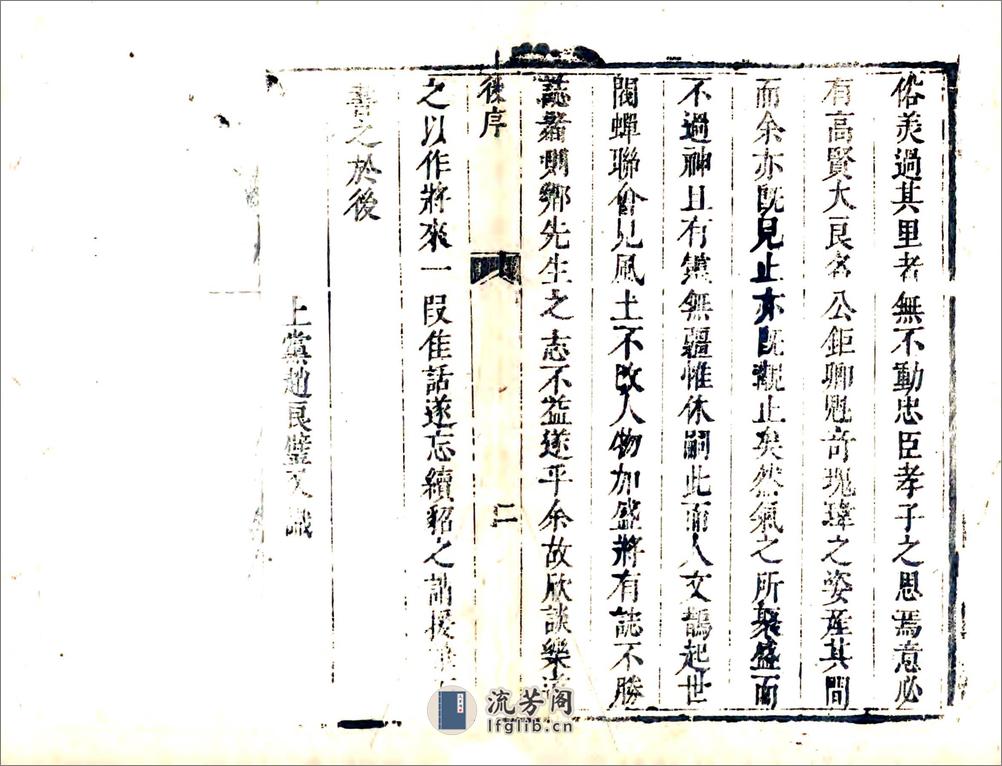 俗美過其里者無不動忠臣孝子之思焉意必
有高賢大良名公鉅卿魁奇瑰瑋之姿産其間
而余亦既見止亦既觀止矣然氣之所聚盛而
不過神且有無無疆惟休嗣此而人文鵲起世
閥蟬聯會見風土不改人物加盛將有誌不勝
誌者則鄉先生之志不益遂乎余故欣談樂道
後序
二
之以作將來一叚佳話遂忘續貂之誚援筆而
書之於後
上黨趙良璧又識
流芳阁
lfglib.com